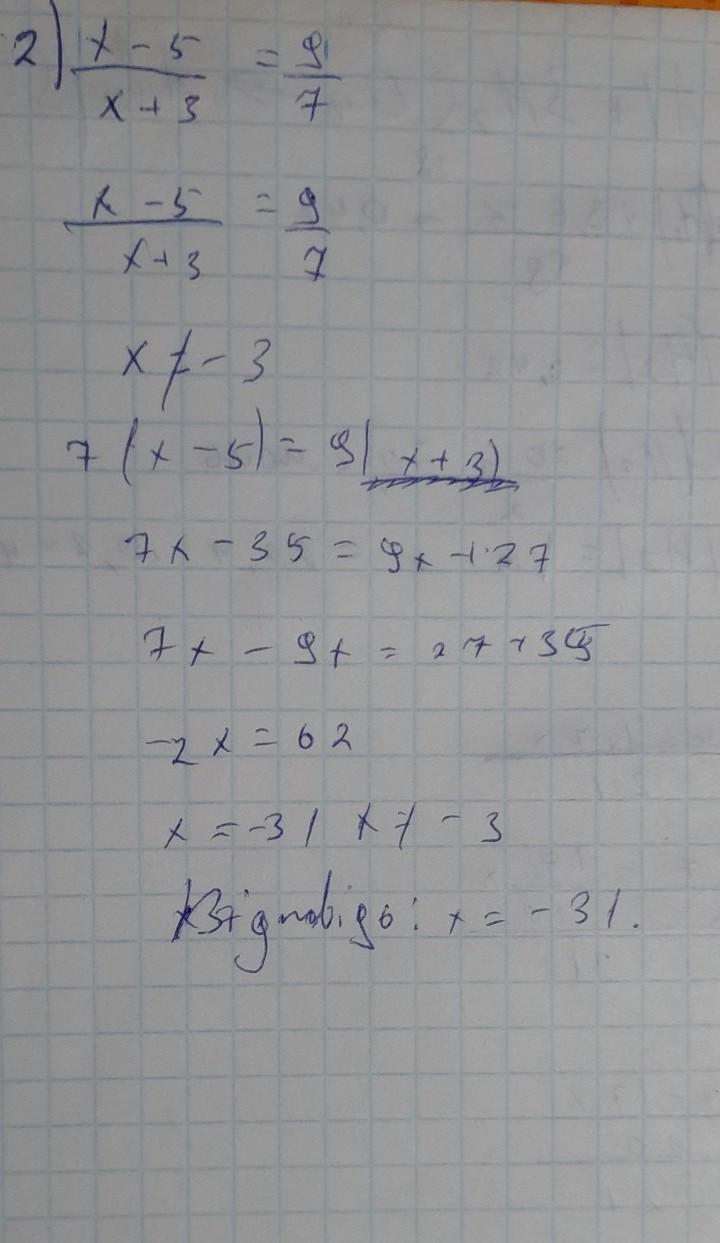 2) x - 5 / x + 3 = 9 / 7
x - 5 / x + 3 = 9 / 7
x ≠ - 3
7 (x - 5) = 9( x + 3)
7x - 35 = 9x + 27
7x - 9x = 27 + 35
-2x = 62
x = -31 x ≠ - 3
Відповідь: x = - 31.